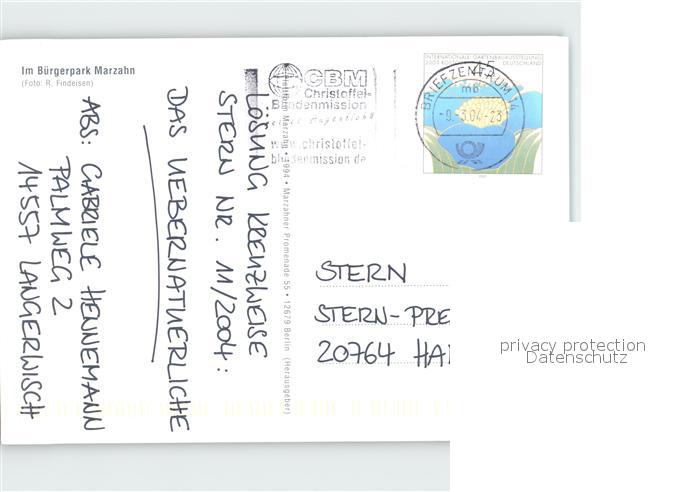 Im Bürgerpark Marzahn
(Foto: R. Findeisen)
LÖSUNG KREUZWEISE
STERN NR. 11/2004:
DAS UEBERNATUERLICHE
ABS: GABRIELE HENNEMANN
PALMWEG 2
14557 LANGERWISCH
Marzahn 1994 • Marzahner Promenade 55 • 12679 Berlin (Herausgeber)
CBM
Christoffel-
Blindenmission
www.christoffel-
blindenmission.de
INTERNATIONALE GARTENBAUAUSSTELLUNG
DEUTSCHLAND
45
BRIEFZENTRUM 14
mb
-9.-3.04-23
STERN
STERN-PRE
20764 HA
privacy protection
Datenschutz